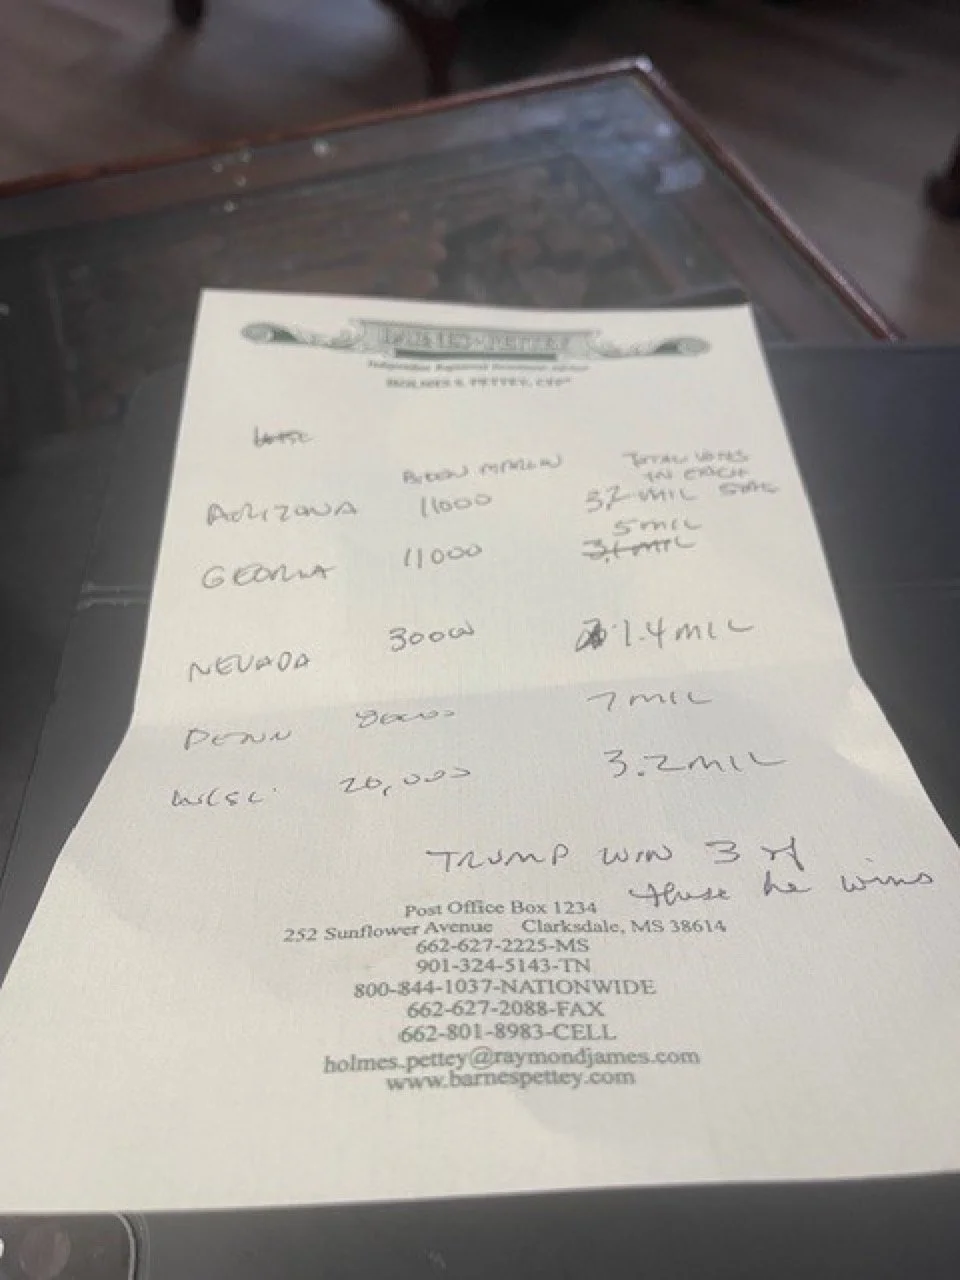 BARNES • PETTEY
Independent Registered Investment Advisor
HOLMES S. PETTEY, CFP®
WISC
BIDEN MARGIN TOTAL VOTES
IN EACH
STATE
ARIZONA 11000 3.2 MIL
5 MIL
GEORGIA 11000 3.1 MIL
NEVADA 30000 1.4 MIL
PENN 80000 7 MIL
WISC. 20,000 3.2 MIL
TRUMP WIN 3 of
these he wins
Post Office Box 1234
252 Sunflower Avenue Clarksdale, MS 38614
662-627-2225-MS
901-324-5143-TN
800-844-1037-NATIONWIDE
662-627-2088-FAX
662-801-8983-CELL
holmes.pettey@raymondjames.com
www.barnespettey.com